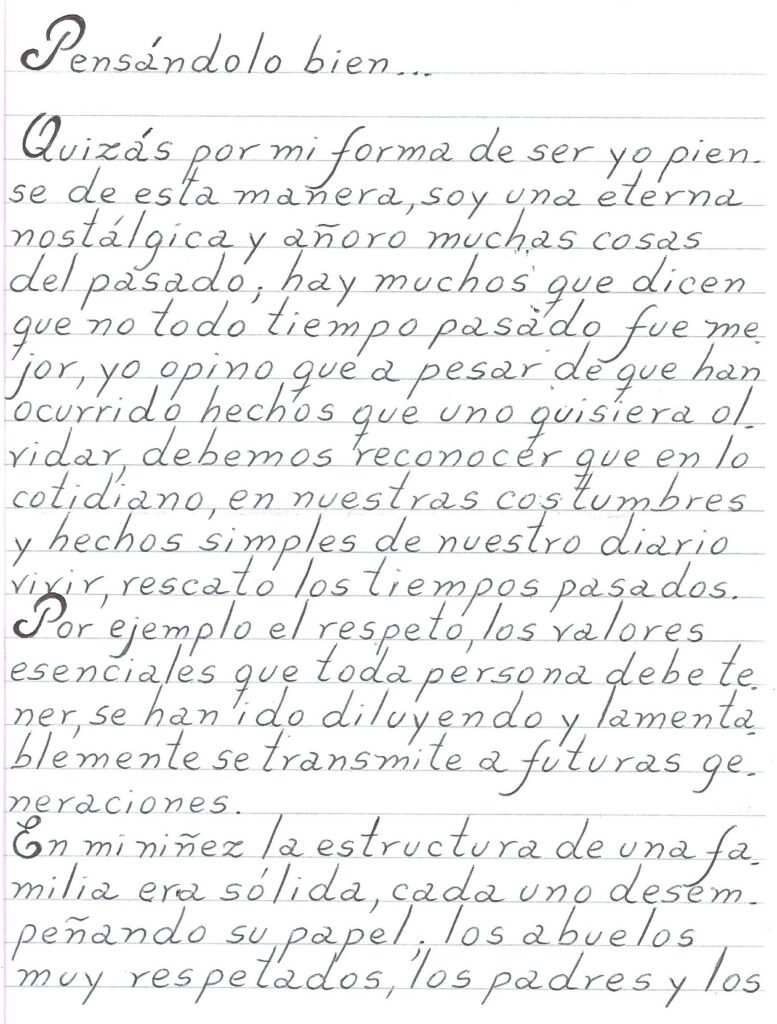 Pensándolo bien...
Quizás por mi forma de ser yo pien-
se de esta manera, soy una eterna
nostálgica y añoro muchas cosas
del pasado; hay muchos que dicen
que no todo tiempo pasado fue me-
jor, yo opino que a pesar de que han
ocurrido hechos que uno quisiera ol-
vidar, debemos reconocer que en lo
cotidiano, en nuestras costumbres
y hechos simples de nuestro diario
vivir, rescato los tiempos pasados.
Por ejemplo el respeto, los valores
esenciales que toda persona debe te-
ner, se han ido diluyendo y lamenta-
blemente se transmite a futuras ge-
neraciones.
En mi niñez la estructura de una fa-
milia era sólida, cada uno desem-
peñando su papel; los abuelos
muy respetados, los padres y los